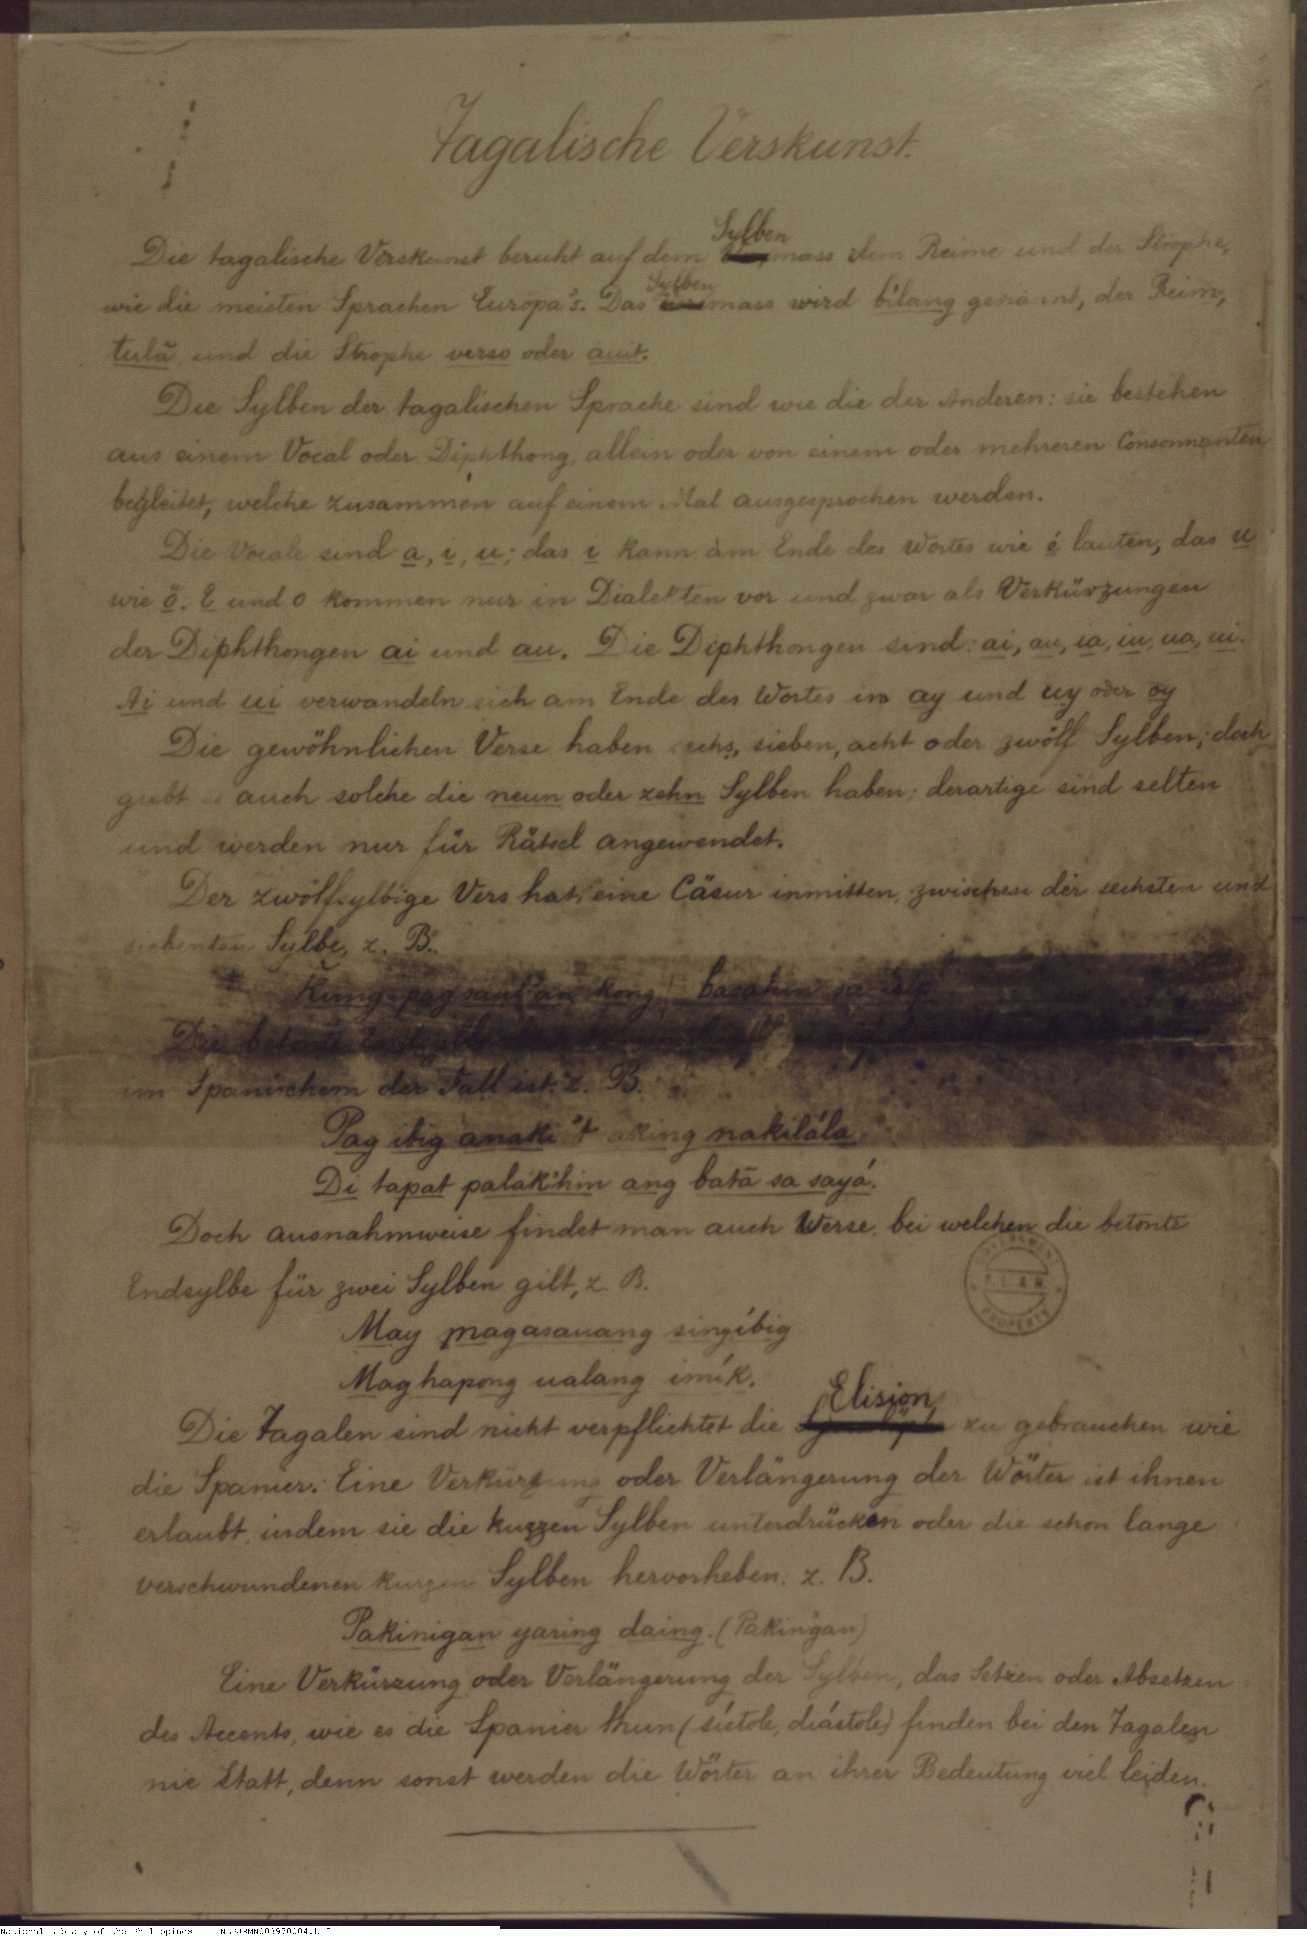 Tagalische Verskunst.
Die tagalische Verskunst beruht auf dem Sylbenmass dem Reime und der Strophe,
wie die meisten Sprachen Europa's. Das Sylbenmass wird bilang genannt, der Reim,
tulâ und die Strophe verso oder auit.
Die Sylben der tagalischen Sprache sind wie die der Anderen: sie bestehen
aus einem Vocal oder Diphthong, allein oder von einem oder mehreren Consonnanten
begleitet, welche zusammen auf einem Mal ausgesprochen werden.
Die Vocale sind a, i, u; das i kann am Ende des Wortes wie é lauten, das u
wie ö. E und o kommen nur in Dialekten vor und zwar als Verkürzungen
der Diphthongen ai und au. Die Diphthongen sind: ai, au, ia, iu, ua, ui.
Ai und ui verwandeln sich am Ende des Wortes in ay und uy oder oy
Die gewöhnlichen Verse haben sechs, sieben, acht oder zwölf Sylben; doch
giebt es auch solche die neun oder zehn Sylben haben; derartige sind selten
und werden nur für Rätsel angewendet.
Der zwölfsylbige Vers hat eine Cäsur inmitten, zwischen der sechsten und
siebenten Sylbe, z. B.
Kung pag kong basahin sa isip
Die betonte
im Spanischem der Fall ist. z. B.
Pag ibig anaki 't aking nakilála
Di tapat palakihin ang batà sa sayá.
Doch ausnahmweise findet man auch Verse bei welchen die betonte
Endsylbe für zwei Sylben gilt, z. B.
May magasauang singíbig
Maghapong ualang imík.
Die Tagalen sind nicht verpflichtet die Elision zu gebrauchen wie
die Spanier: Eine Verkürzung oder Verlängerung der Wörter ist ihnen
erlaubt, indem sie die kurzen Sylben unterdrücken oder die schon lange
verschwundenen kurzen Sylben hervorheben. z. B.
Pakinigan yaring daing. (Pakingan)
Eine Verkürzung oder Verlängerung der Sylben, das Setzen oder Absetzen
des Accents, wie es die Spanier thun (sístole, diástole) finden bei den Tagalen
nie statt, denn sonst werden die Wörter an ihrer Bedeutung viel leiden.
PROPERTY
National Library of the Philippines